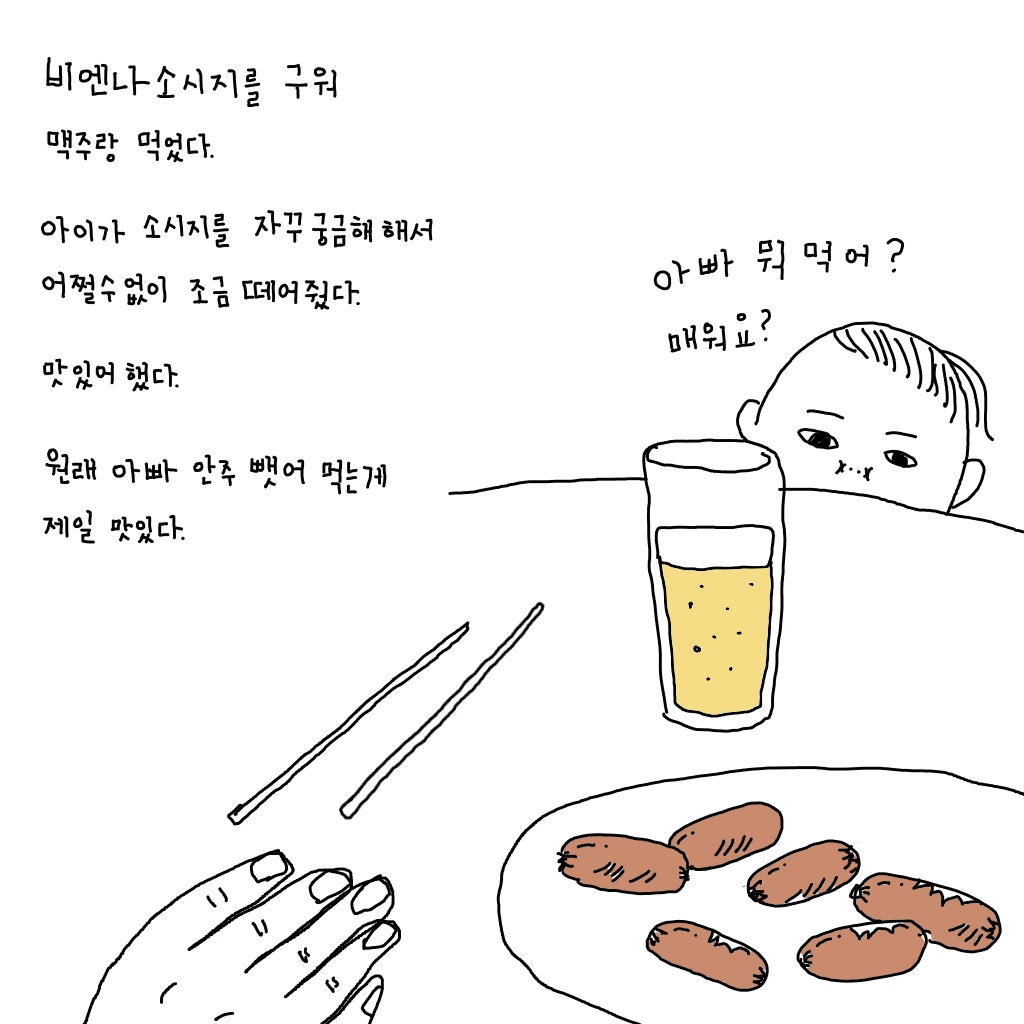 비엔나소시지를 구워
맥주랑 먹었다.
아이가 소시지를 자꾸 궁금해 해서
어쩔수없이 조금 떼어줬다.
맛있어 했다.
원래 아빠 안주 뺏어 먹는게
제일 맛있다.
아빠 뭐 먹어?
매워요?